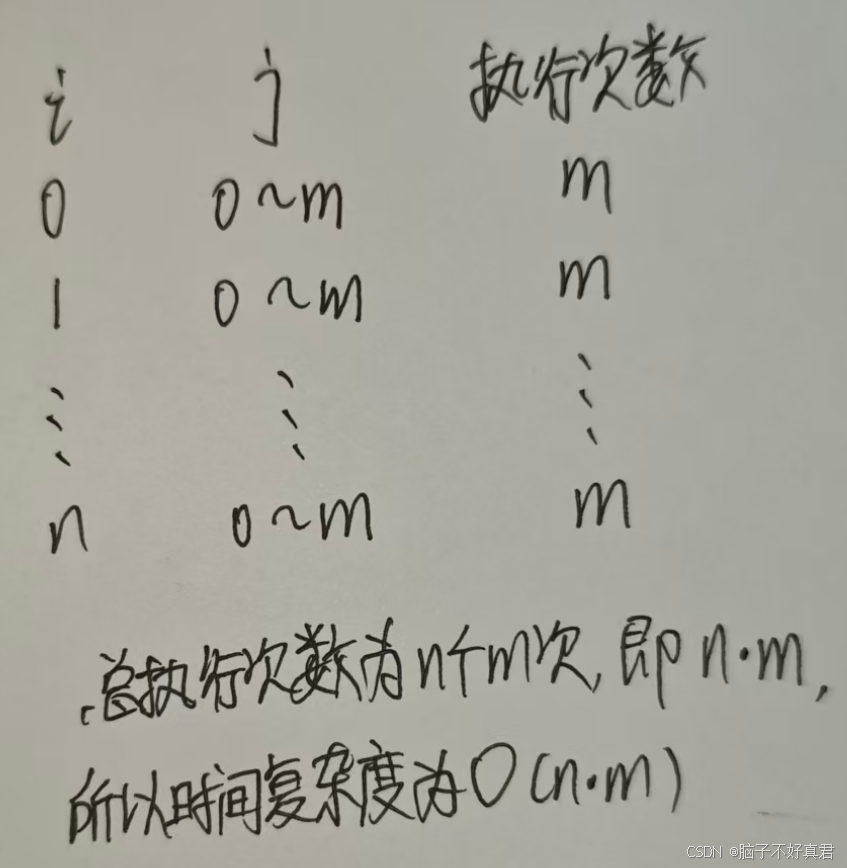 i j 执行次数
0 0~m m
1 0~m m
⋮ ⋮ ⋮
n 0~m m
∴总执行次数为n个m次,即n·m,
所以时间复杂度为O(n·m)
CSDN @脑子不好真君